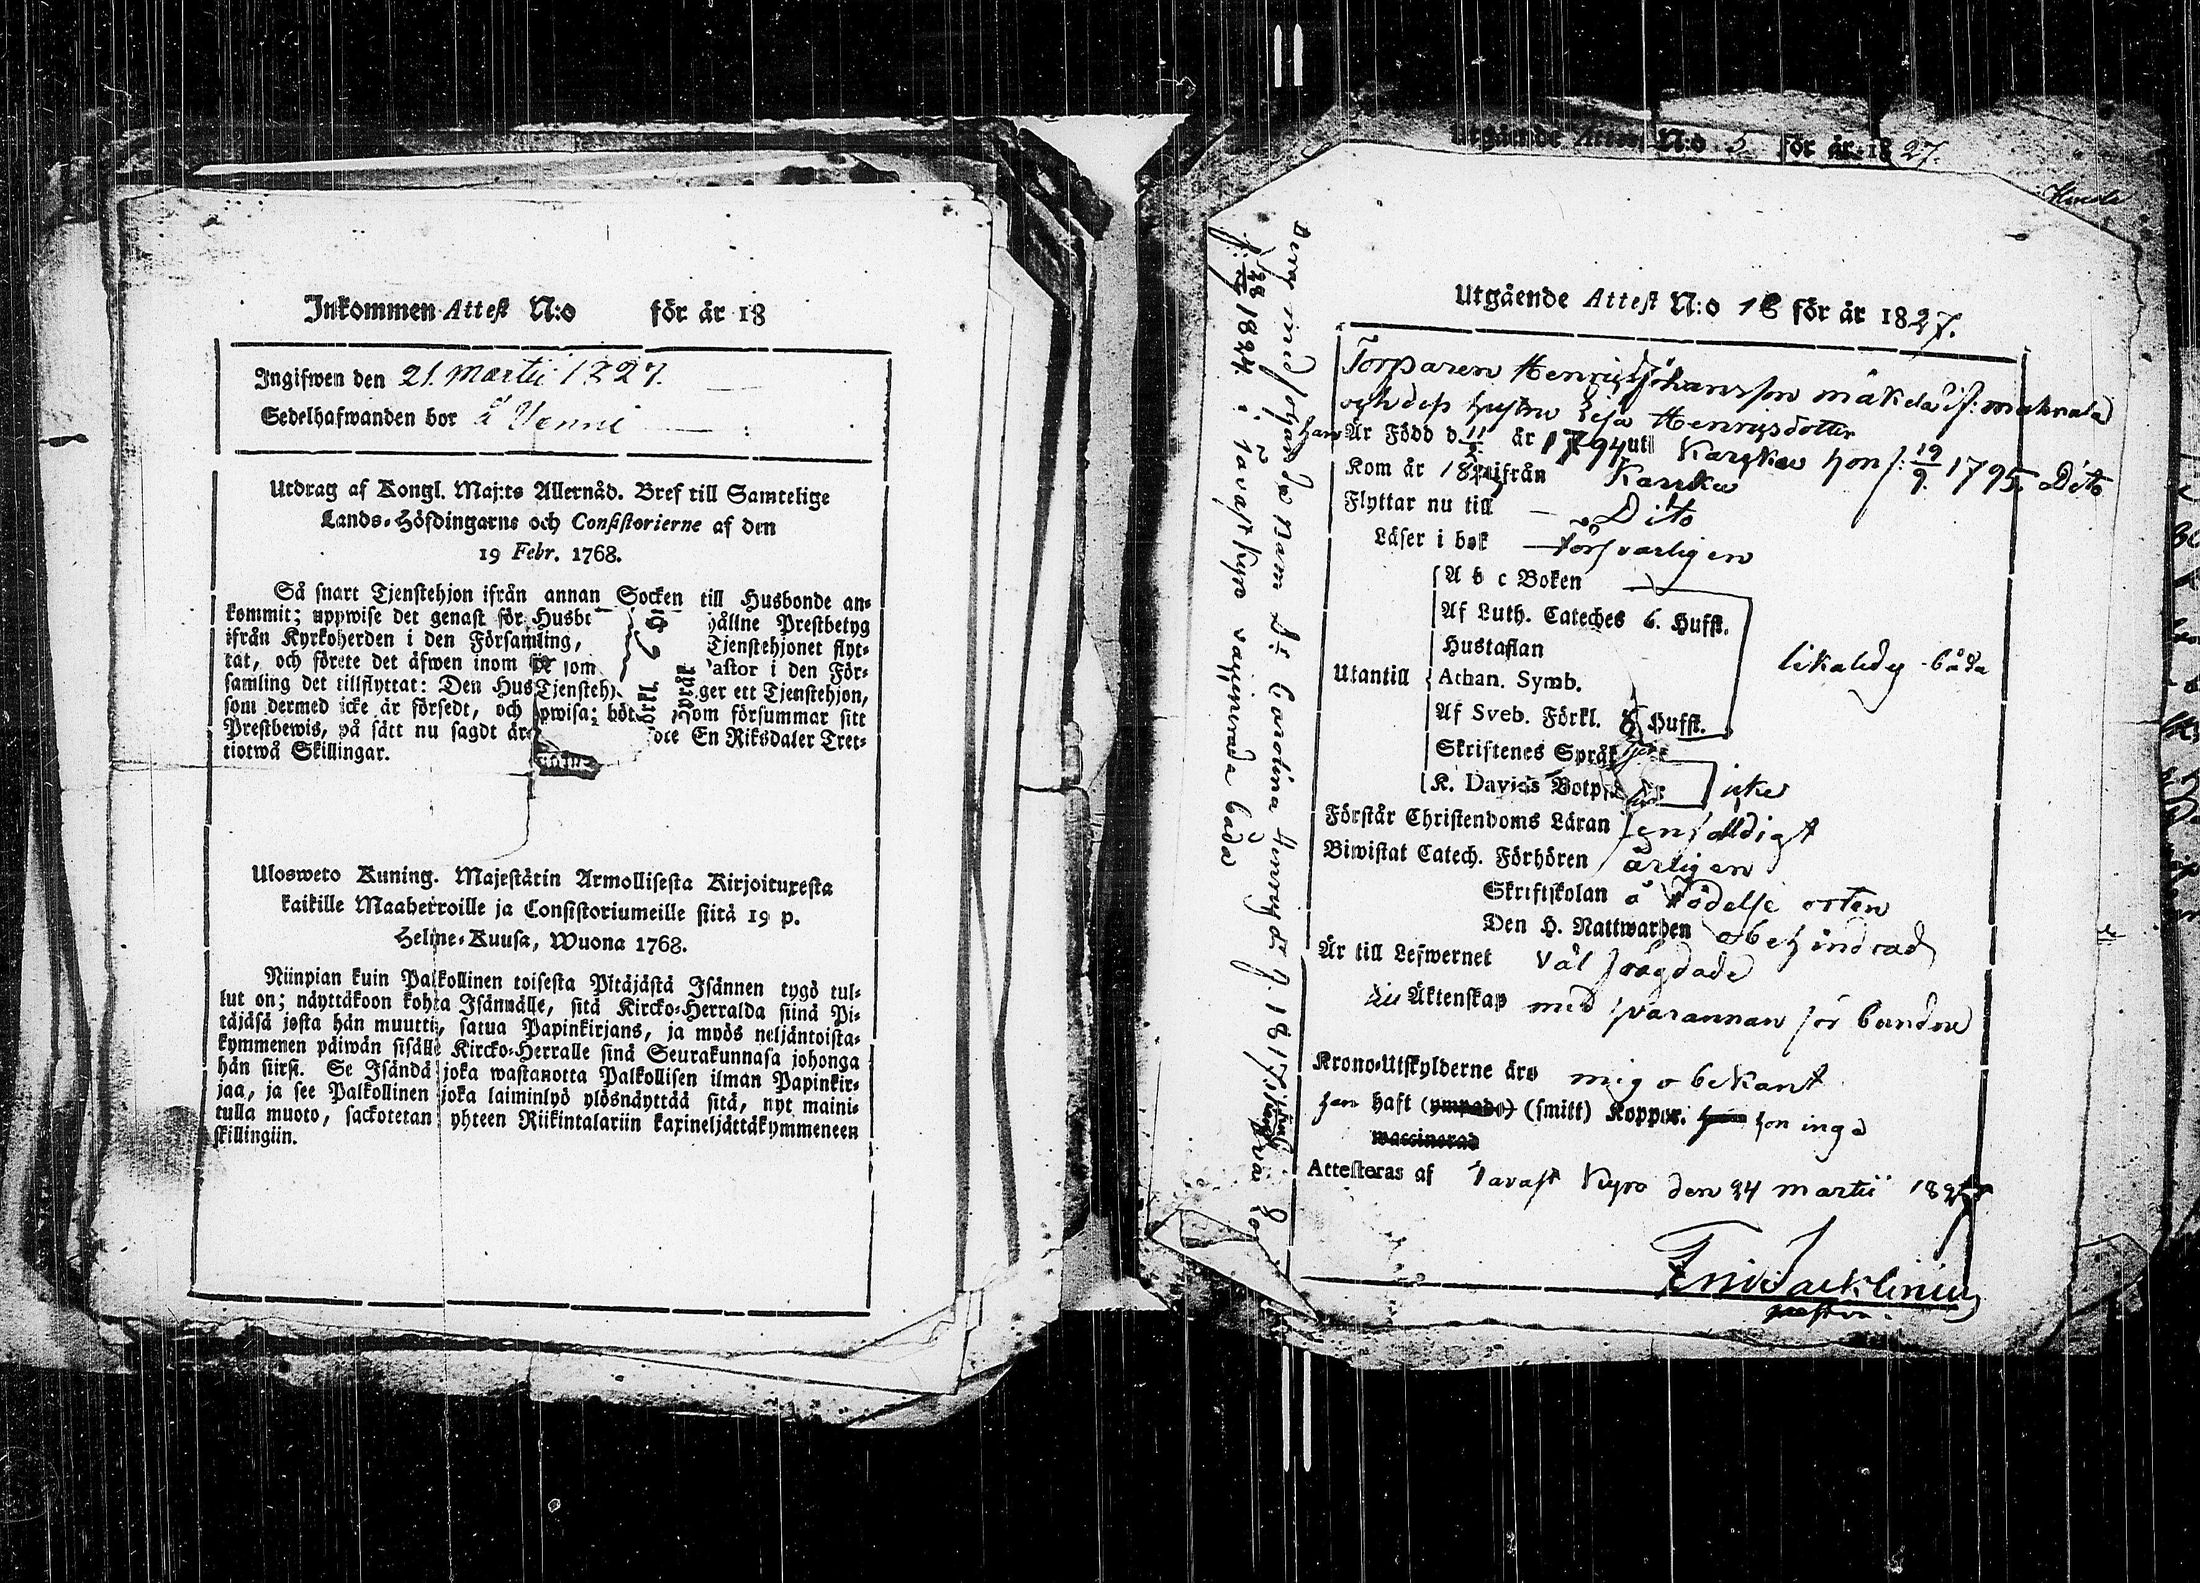 Inkommen Attest N:o för år 18
Ingifwen den 21. Martii 1827.
Sedelhafwanden bor å Yenni
Utdrag af Kongl. Maj:ts Allernåd. Bref till Samtelige
Lands-Höfdingarne och Consistorierne af den
19 Febr. 1768.
Så snart Tjenstehjon ifrån annan Socken till Husbonde an-
kommit; uppwise det genast för Husbo hållne Prestbetyg
ifrån Kyrkoherden i den Församling, Tjenstehjonet flyt-
tat, och förete det äfwen inom som astor i den För-
samling det tillflyttat: Den Hus Tjensteh ger ett Tjenstehjon,
som dermed icke är försedt, och pwisa; böt som försummar sitt
Prestbewis, på sätt nu sagdt är En Riksdaler Tret-
tiotwå Skillingar.
Ulosweto Kuning. Majestätin Armollisesta Kirjoituxesta
kaikille Maaherroille ja Consistoriumeille siitä 19 p.
Helme-Kuusa, Wuona 1768.
Niinpian kuin Palkollinen toisesta Pitäjästä Isännen tygö tul-
lut on; näyttäkoon kohta Isännälle, sitä Kircko-Herralda siinä Pi-
täjäsä josta hän muutti, satua Papinkirjans, ja myös neljäntoista-
kymmenen päiwän sisälle Kircko-Herralle sinä Seurakunnasa johonga
hän siirsi. Se Isändä joka wastanotta Palkollisen ilman Papinkir-
jaa, ja see Palkollinen joka laiminlyö ylösnäyttää sitä, nyt maini-
tulla muoto, sackotetan yhteen Riikintalariin kaxineljättäkymmeneen
skillingiin.
Utgående Attest N:o 5 för år 1827.
Utgående Attest N:o för år 1827.
Torparen Henric Johansson
och dess hustru Lisa Henricsdotter
han Är Född d 11 år 1794 uti hon f: 19/9 1795. Dito
Kom år ifrån
Flyttar nu till Dito
Läser i bok försvarligen
A b c Boken
Af Luth. Cateches 6. Hufst.
Hustaflan
Utantill Athan. Symb. likaledes båda
Af Sveb. Förkl. 8 Hufst.
Skriftenes Språk
K. Davids Botps icke
Förstår Christendoms Läran enfaldigt
Biwistat Catech. Förhören årligen
Skriftskolan å födelse orten
Den H. Nattwarden obehindrad
Är till Lefwernet väl frägdade
Äktenskap med hvarannan förbundne
Krono-Utskylderne äro mig obekant
han haft (ympade) (smitt) Koppor. hon inga
waccinerad
Attesteras af Tavast Kyro den 24 martii 1827
pastor.
Deras medföljande barn D:r Carolina Henricsd:r f. 1817
1824. i Tavast Kyro vaccinerada båda